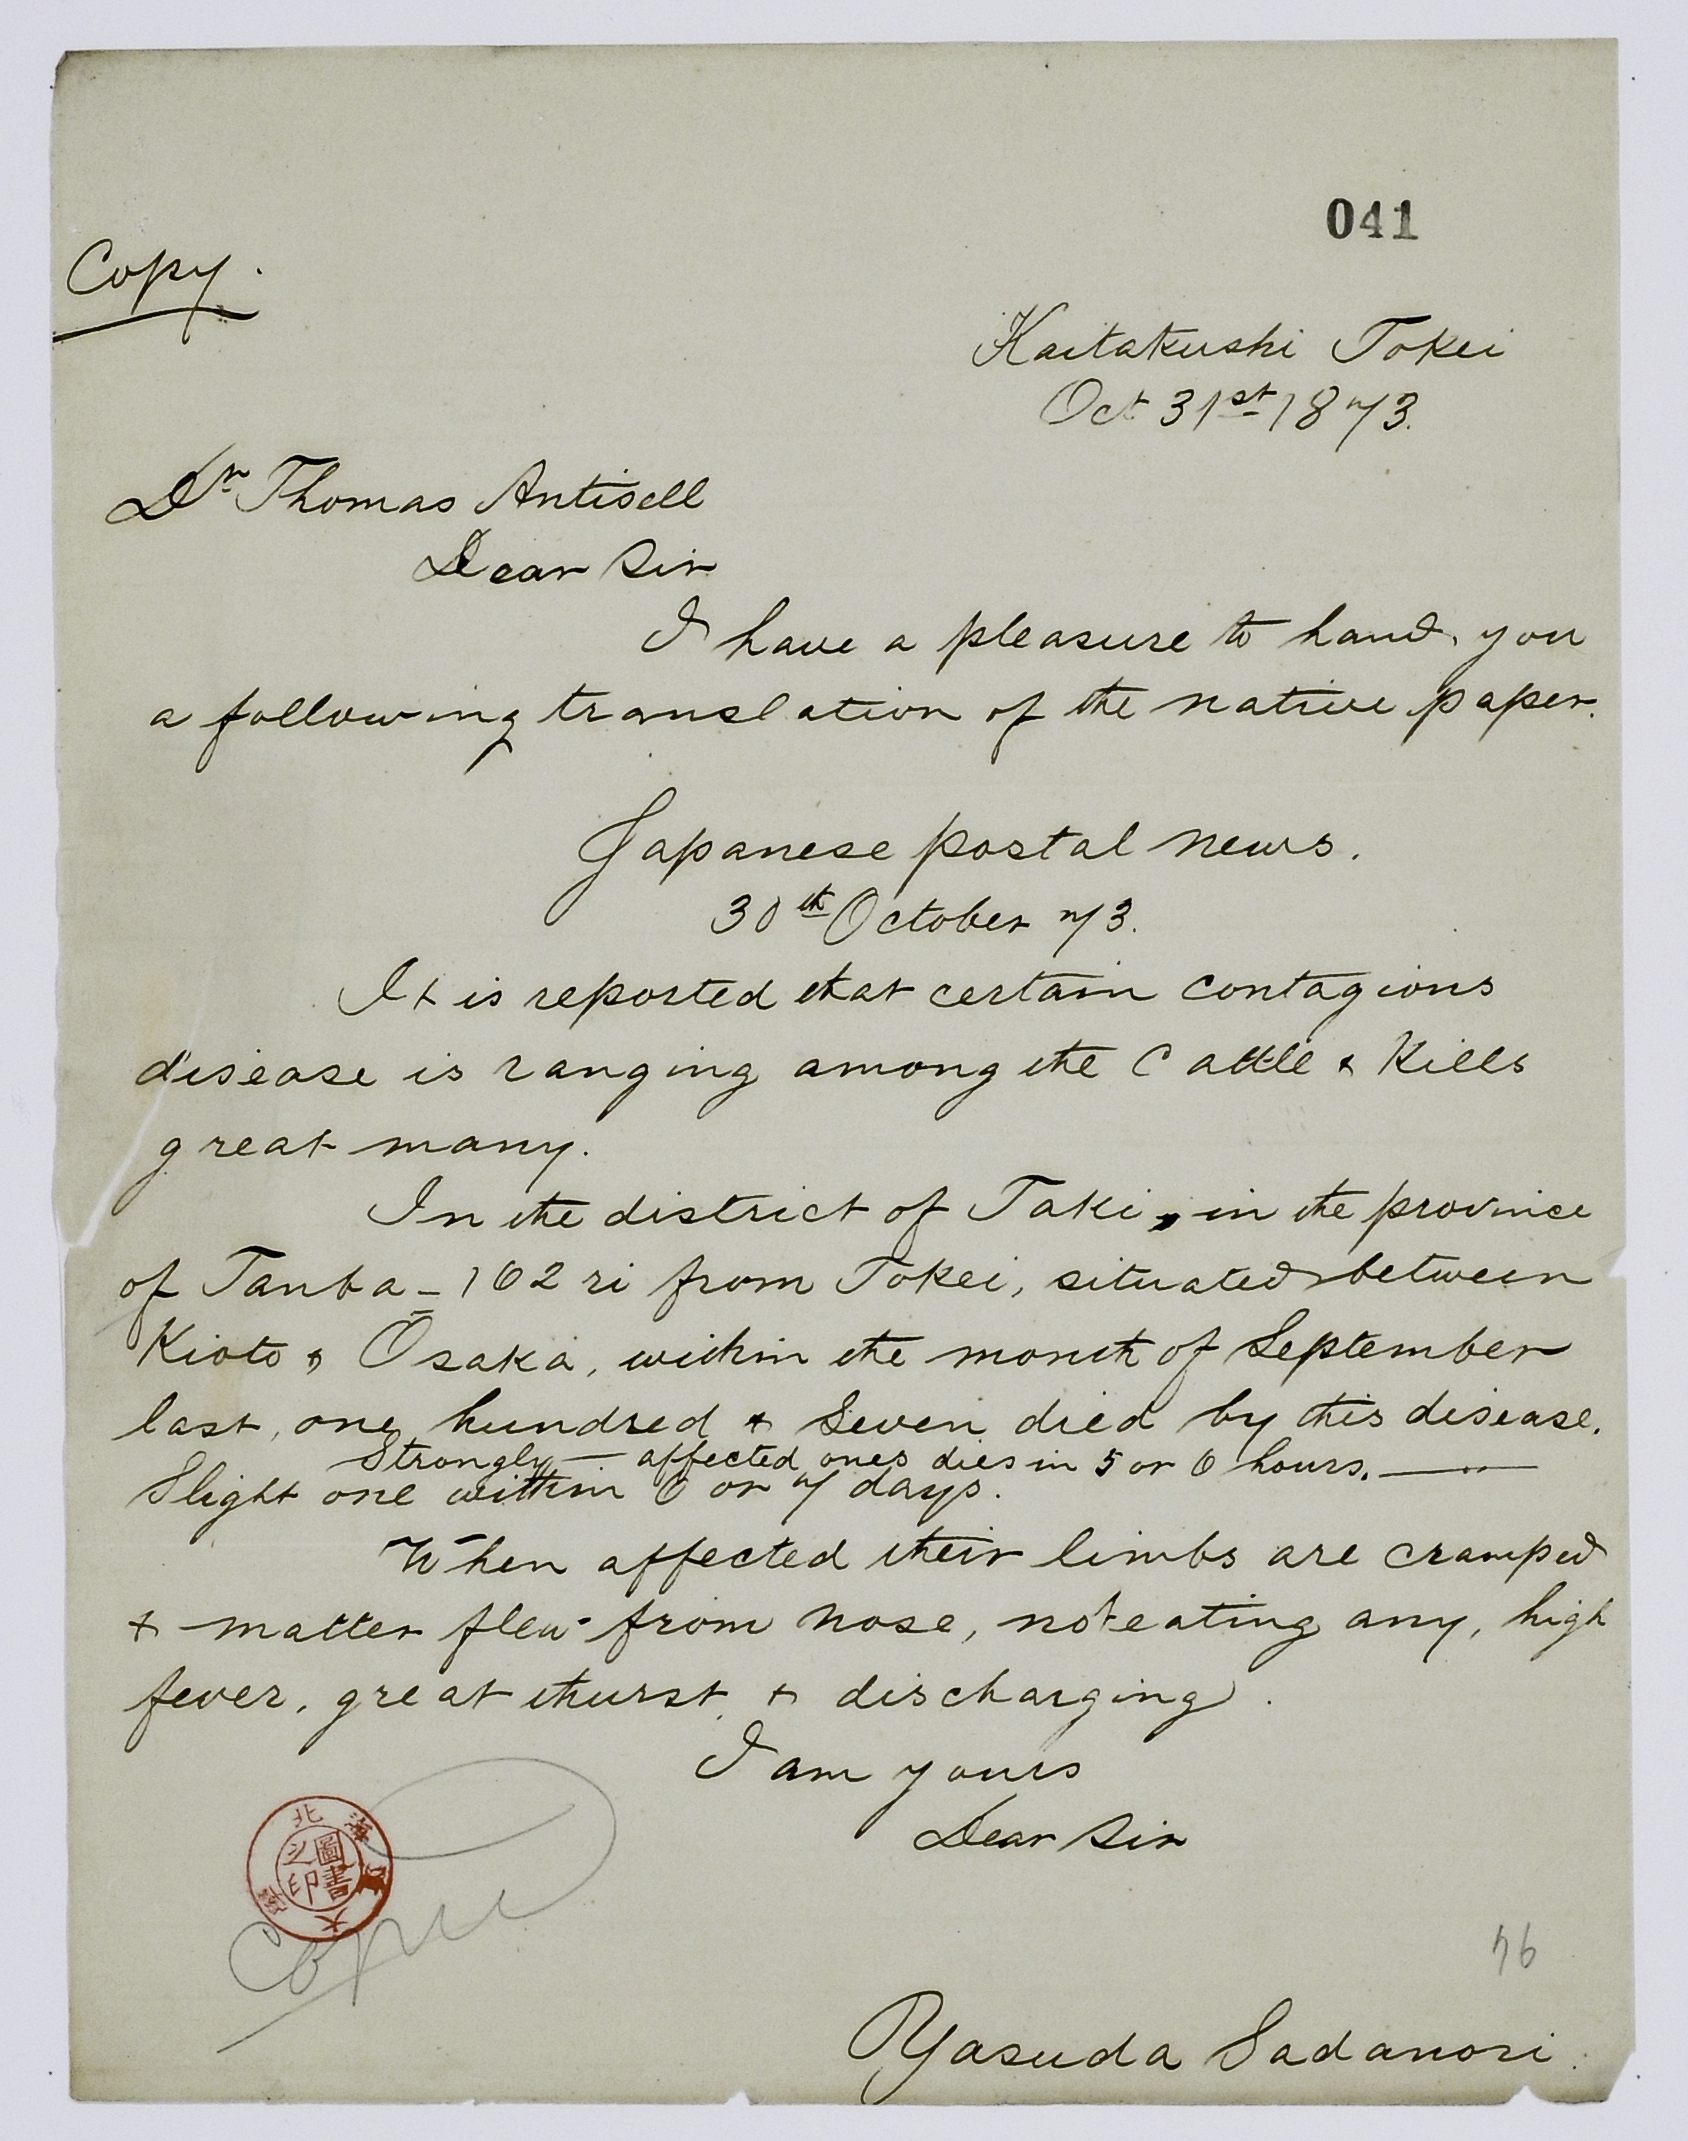 041
Copy.
Kaitakushi Tokei
Oct 31st 1873.
Dr Thomas Antisell
Dear Sir
I have a pleasure to hand, you
a following translation of the native paper.
Japanese postal news.
30th October 73.
It is reported that certain contagious
disease is ranging among the Cattle & Kills
great many.
In the district of Taki, in the province
of Tanba - 162 ri from Tokei, situated between
Kioto & Osaka, within the month of September
last, one hundred & Seven died by this disease.
Strongly — affected ones dies in 5 or 6 hours. —
Slight one within 6 or 7 days.
When affected their limbs are cramped
& matter flew from nose, not eating any, high
fever, great thurst & discharging.
I am yours
Dear Sir
北海道大學
圖書之印
Copied
46
Yasuda Sadanori.